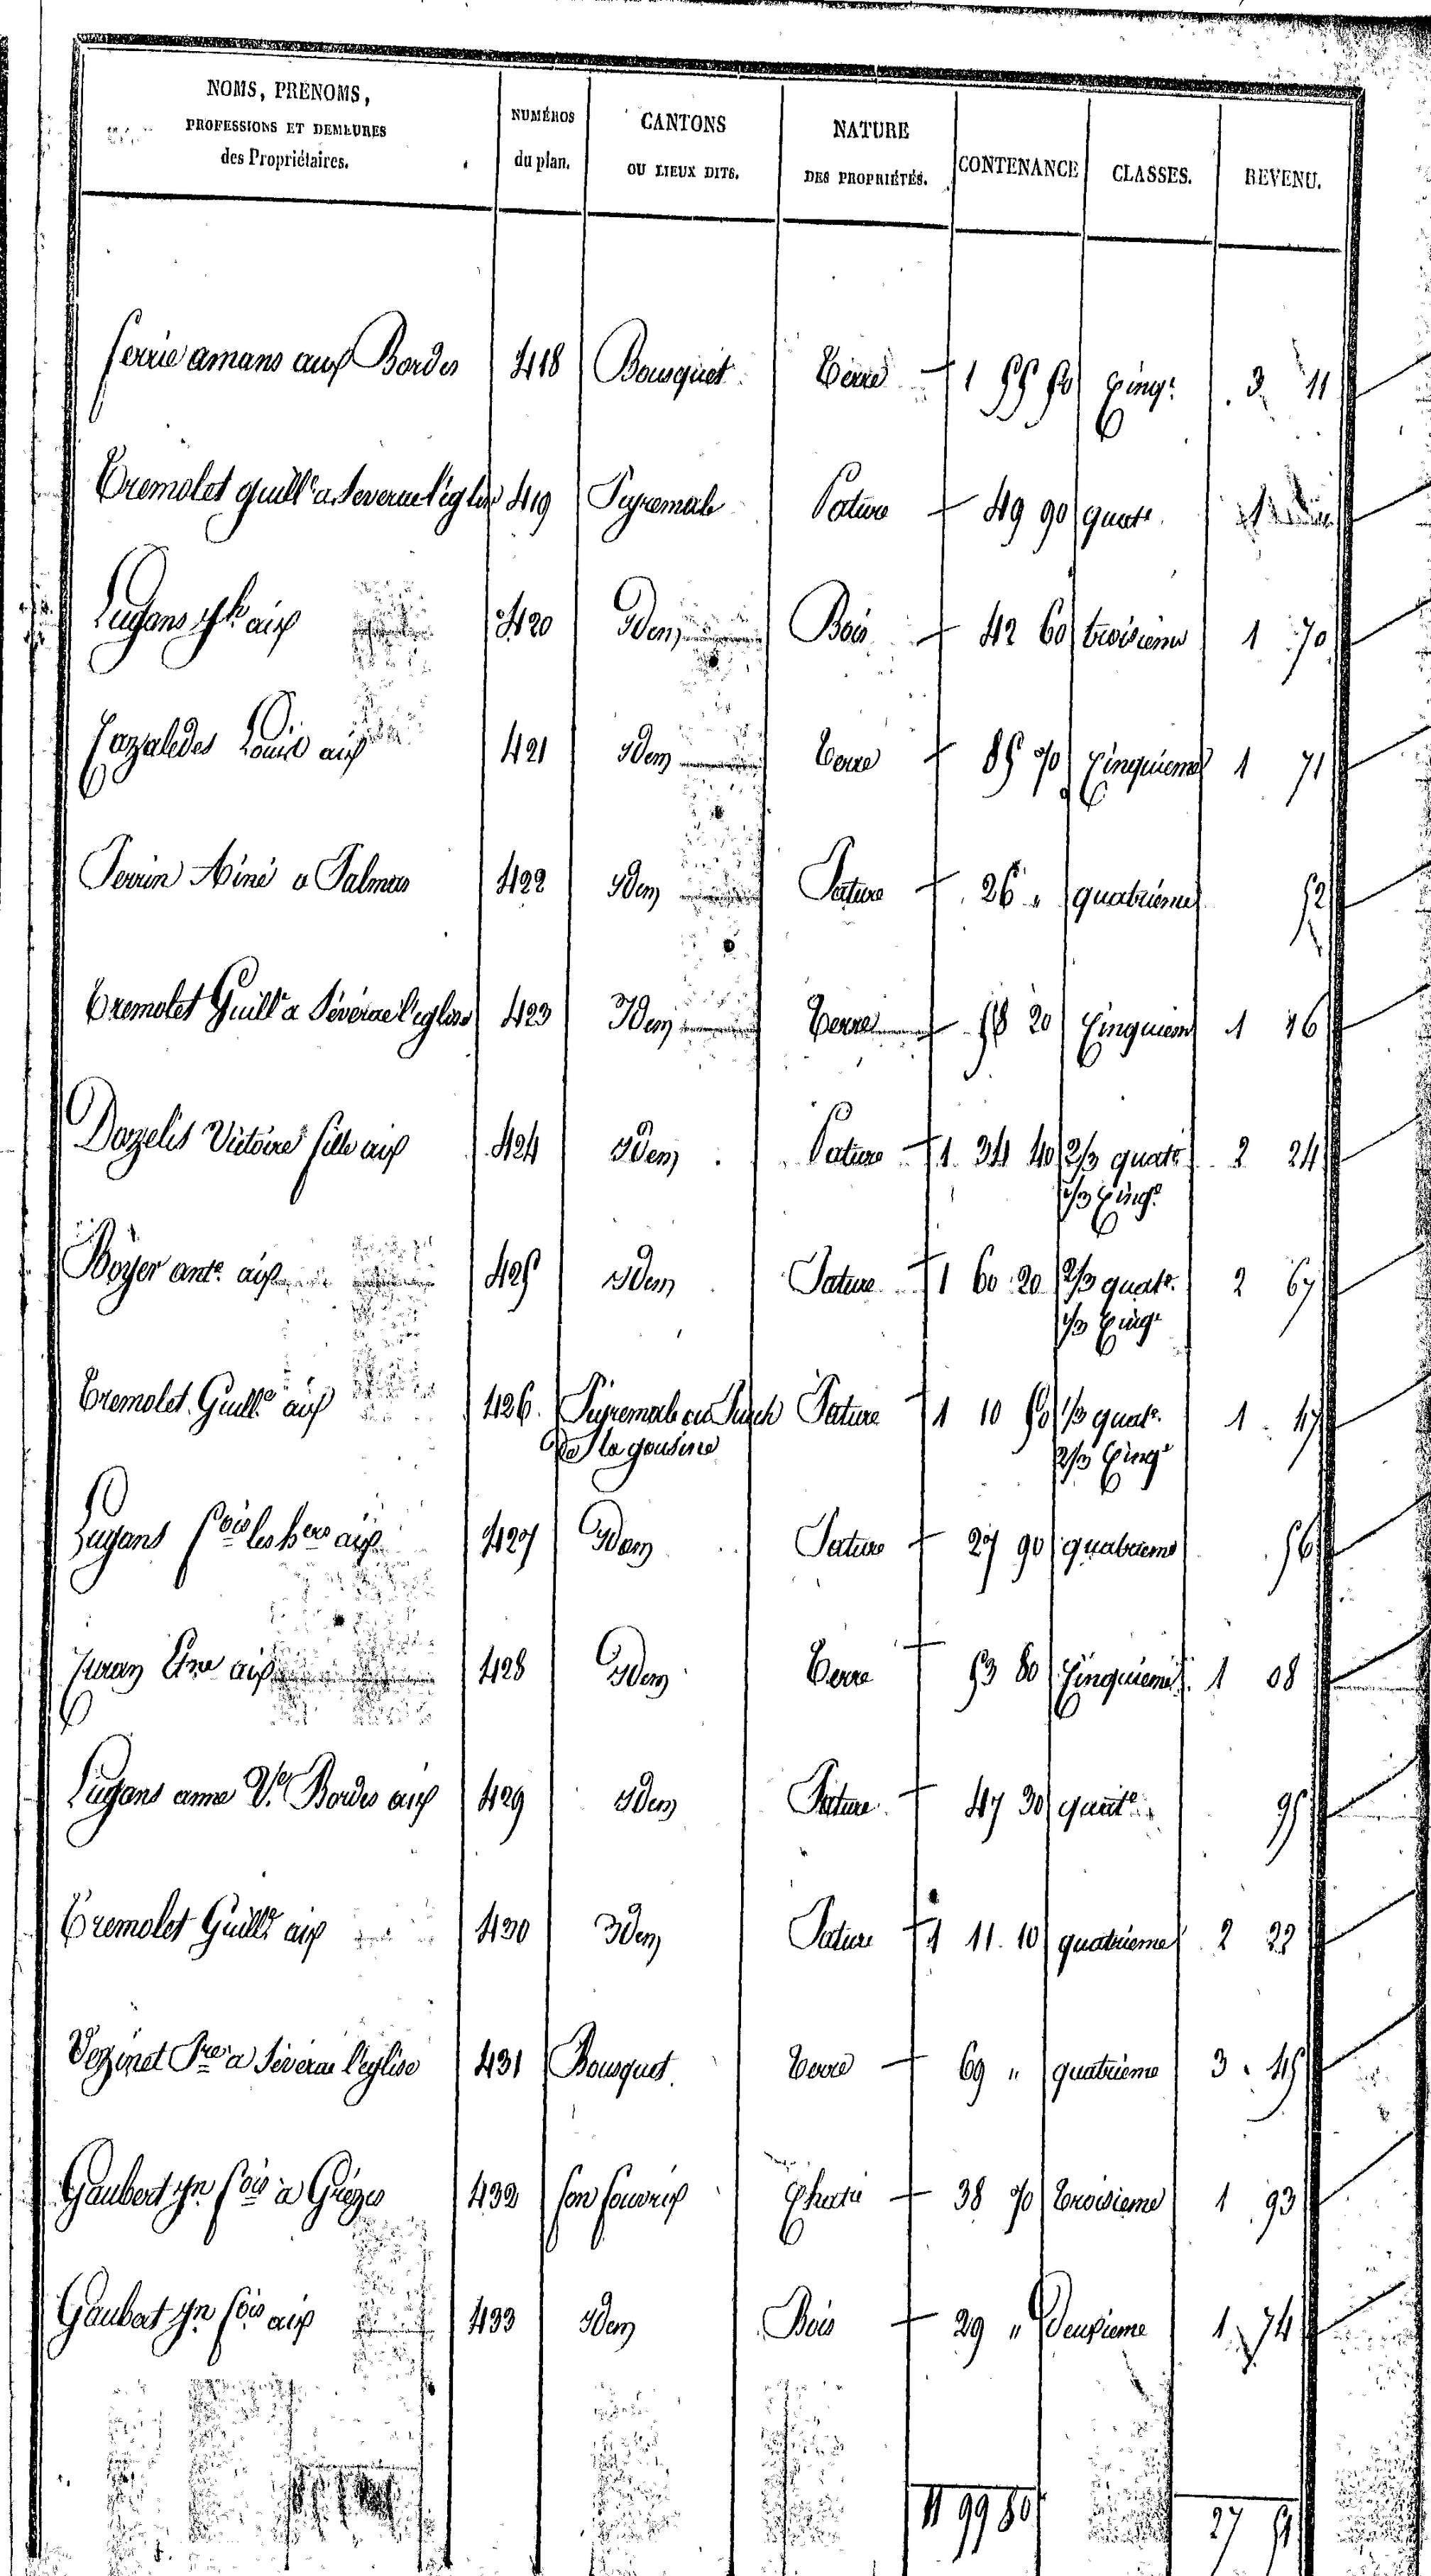 NOMS, PRÉNOMS,
PROFESSIONS ET DEMEURES
des Propriétaires.
NUMÉROS
du plan.
CANTONS
OU LIEUX DITS.
NATURE
DES PROPRIÉTÉS.
CONTENANCE
CLASSES.
REVENU.
ferrié amans aux Bordes 418 Bousquet Terre 1 55 50 Cinq.e 3 11
Tremolet guill.e a Severac l'eglise 419 Puyremale Pature 49 90 quat.e
Lugans aux 420 Idem Bois 42 60 troisieme 1 70
Cazaledes Louis aux 421 Idem Terre 85 70 Cinquieme 1 71
Perrin Aîné a Palmas 422 Idem Pature 26 " quatrième 52
Tremolet Guill.e a Sévérac l'eglise 423 Idem Terre 58 20 Cinquieme 1 16
Dazelis Victoire fille aux 424 Idem Pature 1 34 40 2/3 quat.e 2 24
1/3 Cinq.e
Boyer ant.e aux 425 Idem Pature 1 60 20 2/3 quat.e 2 67
1/3 Cinq.e
Tremolet Guill.e aux 426 Puyremale ou Puech Pature 1 10 50 1/3 quat.e 1 47
de la gousine
2/3 Cinq.e
Lugans f.ois les h.ers aux 427 Idem Pature 27 90 quatrieme 56
aux 428 Idem Terre 53 80 Cinquieme 1 08
Lugans anne V.e Bordes aux 429 Idem Pature 47 30 quat.e 95
Tremolet Guill.e aux 430 Idem Pature 1 11 10 quatrieme 2 22
Vezinet P.re a Séverac l'eglise 431 Bousquet Terre 69 " quatrieme 3 45
Gaubert Jn f.ois a Grèzes 432 fon Cherté 38 70 troisieme 1 93
Gaubert Jn f.ois aux 433 Idem Bois 29 " Deuxieme 1 74
11 99 80
27 51